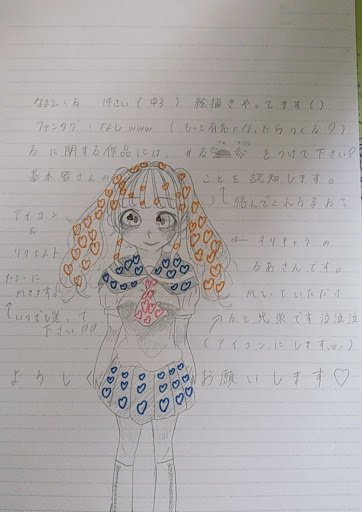 なまえ：る 14さい（中3） 絵描きやってます（）
ファンタグ：なしwww（もっと有名になったらつくる？）
るに関する作品には、#る をつけて下さい？
基本皆さんの ことを認知します。
↑絡んでくれる子ね？
アイコン
＆
リクエスト
たまーに
します。
↑いつでも送って
下さい！！
← オリキャラの
るあさんです。
していただけ
ると光栄です泣泣泣
（アイコンにします
よろしく お願いします♡